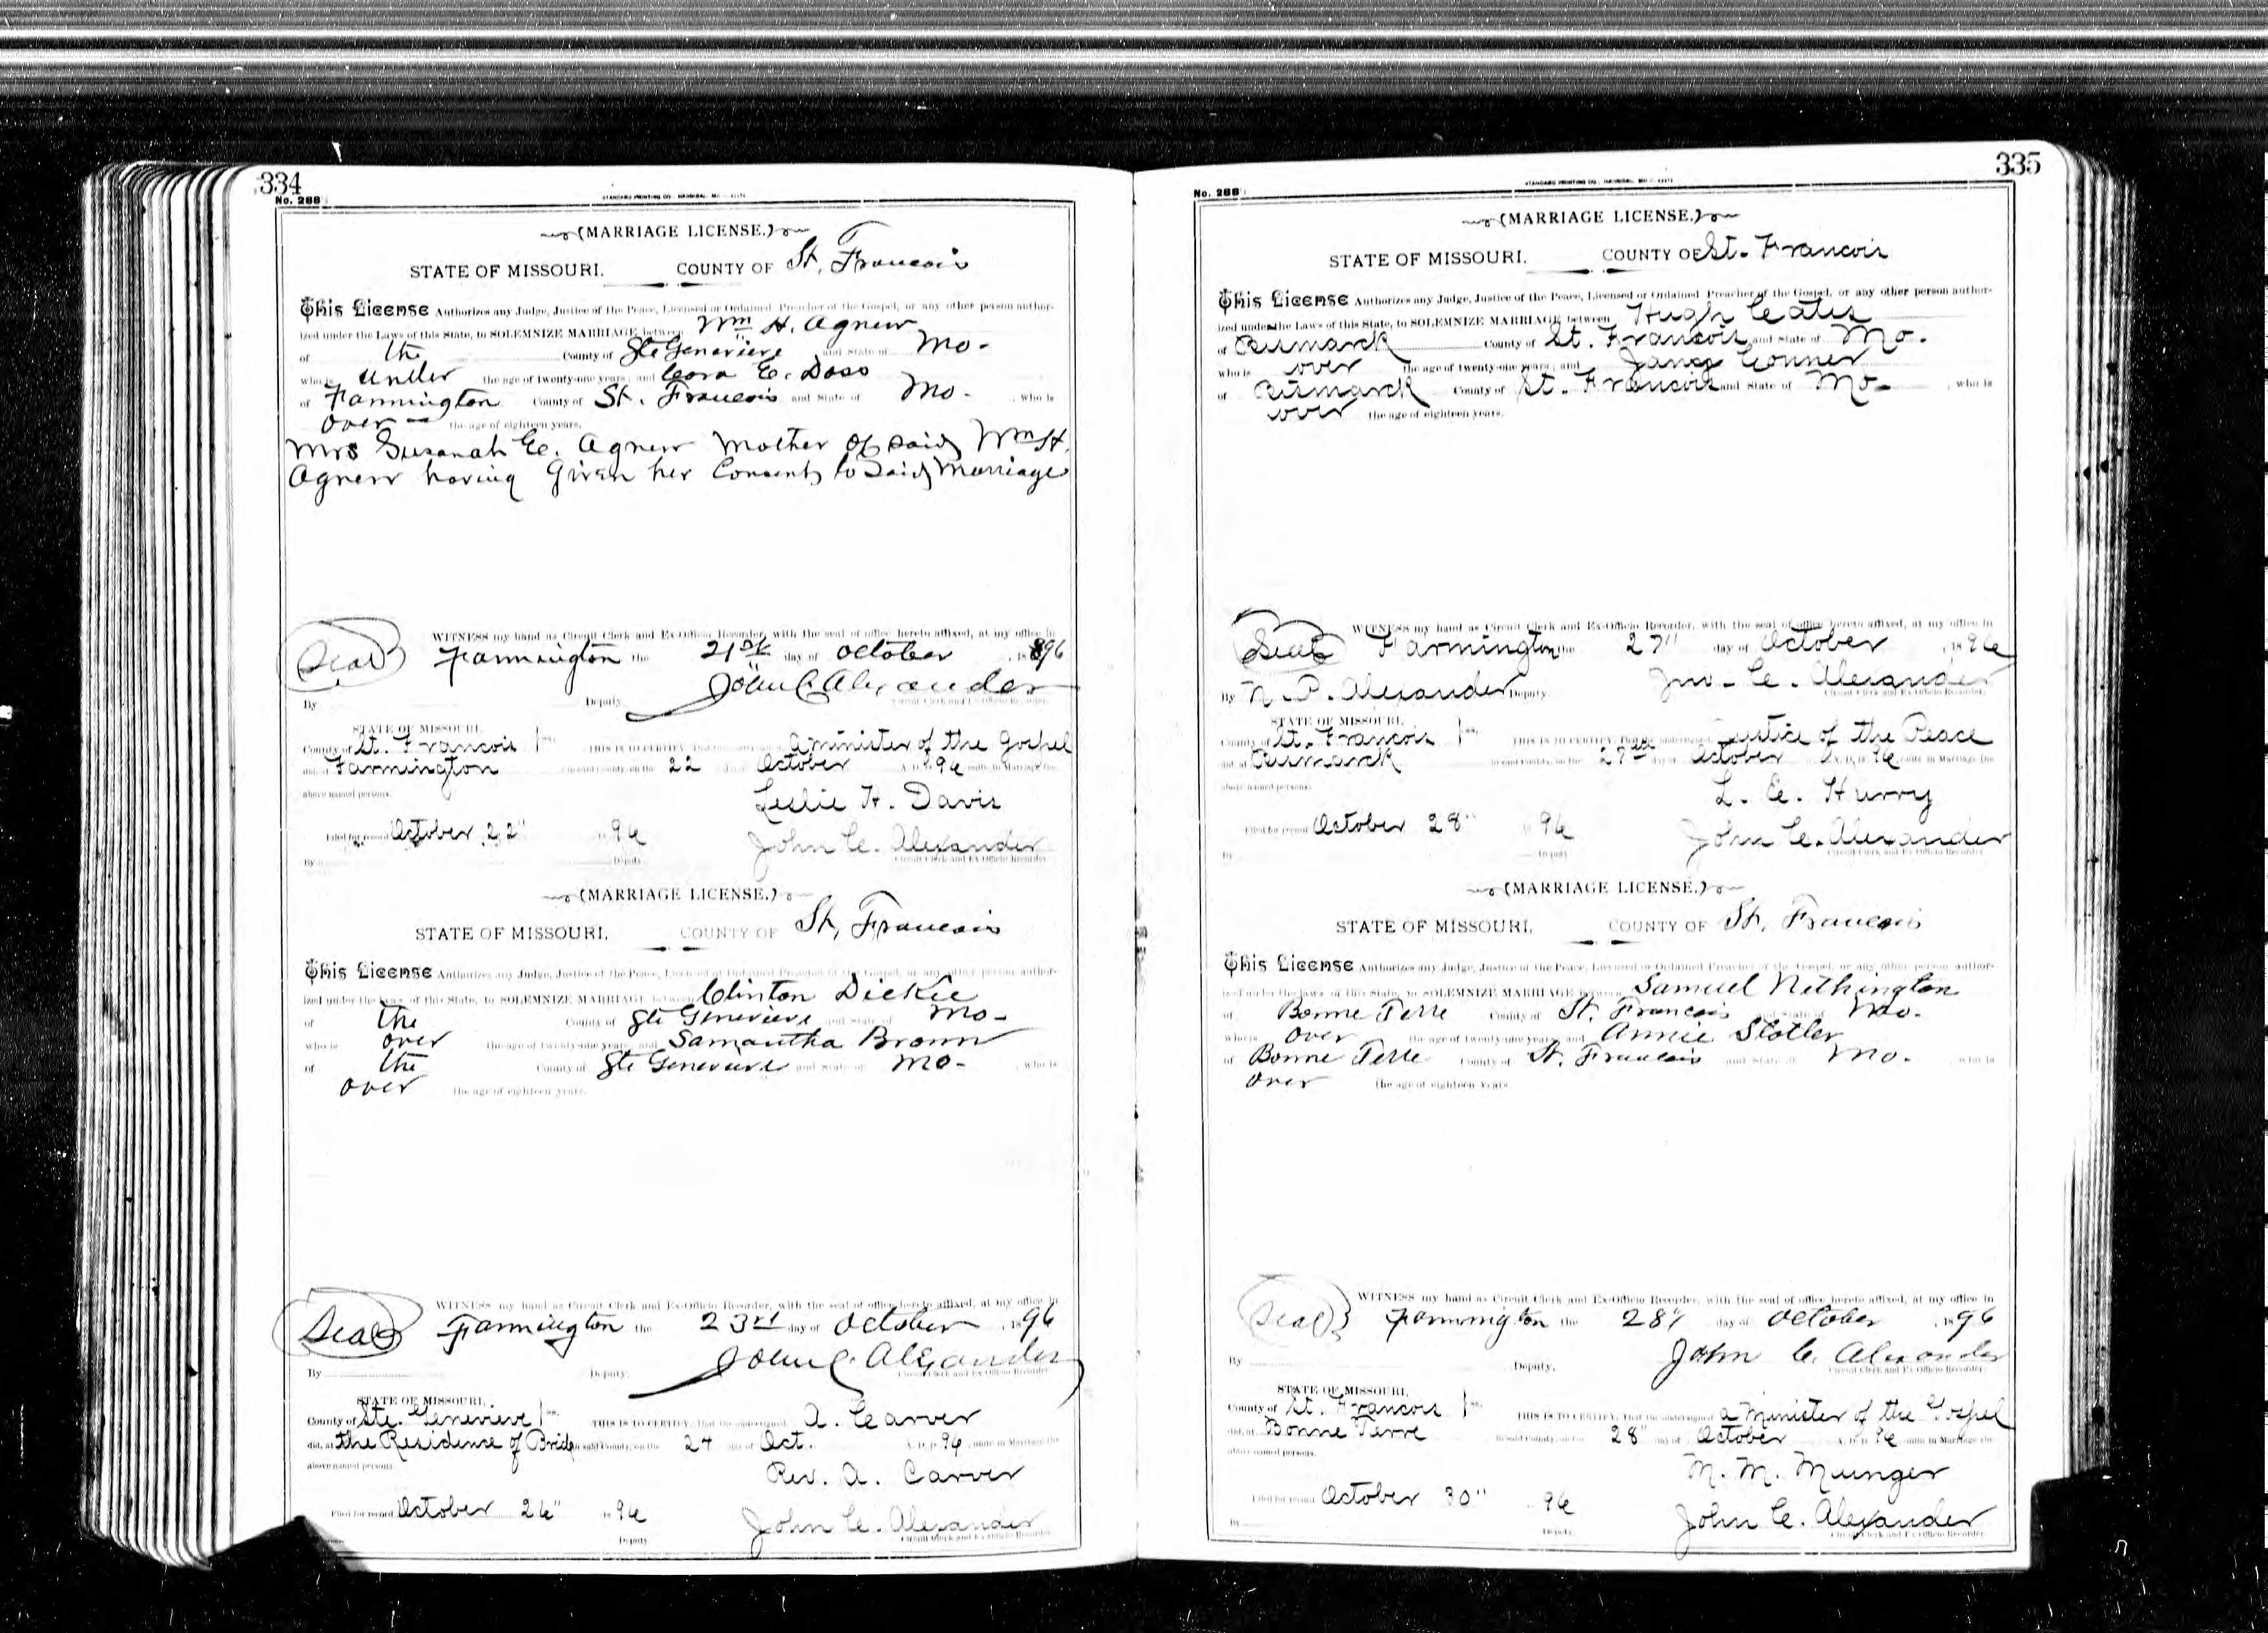 334
No. 288
STANDARD PRINTING CO., HANNIBAL, MO.
(MARRIAGE LICENSE.)
STATE OF MISSOURI. COUNTY OF St. Francois
This License Authorizes any Judge, Justice of the Peace, Licensed or Ordained Preacher of the Gospel, or any other person author-
ized under the Laws of this State, to SOLEMNIZE MARRIAGE between Wm H. Agnew
of the County of Ste Genevieve and State of Mo-
who is under the age of twenty-one years, and Cora E. Doss
of Farmington County of St. Francois and State of Mo- , who is
over the age of eighteen years.
Mrs Susanah E. Agnew Mother of said Wm H.
Agnew having Given her Consent to Said Marriage
WITNESS my hand as Circuit Clerk and Ex-Officio Recorder, with the seal of office hereto affixed, at my office in
Seal Farmington the 21st day of October , 1896
John C. Alexander
By Deputy. Circuit Clerk and Ex-Officio Recorder.
STATE OF MISSOURI,
County of St. Francois ss. THIS IS TO CERTIFY, That the undersigned a minister of the Gospel
did, at Farmington in said County, on the 22 day of October A. D. 1896 unite in Marriage the
above named persons.
Leslie H. Davis
Filed for record October 22" 1896 John C. Alexander
By Deputy. Circuit Clerk and Ex-Officio Recorder.
(MARRIAGE LICENSE.)
STATE OF MISSOURI. COUNTY OF St, Francois
This License Authorizes any Judge, Justice of the Peace, Licensed or Ordained Preacher of the Gospel, or any other person author-
ized under the Laws of this State, to SOLEMNIZE MARRIAGE between Clinton Dickie
of the County of Ste Genevieve and State of Mo-
who is over the age of twenty-one years, and Samantha Brown
of the County of Ste Genevieve and State of Mo- , who is
over the age of eighteen years.
WITNESS my hand as Circuit Clerk and Ex-Officio Recorder, with the seal of office hereto affixed, at my office in
Seal Farmington the 23rd day of October , 1896
John C. Alexander
By Deputy. Circuit Clerk and Ex-Officio Recorder.
STATE OF MISSOURI,
County of Ste. Genevieve ss. THIS IS TO CERTIFY, That the undersigned A. Carver
did, at the Residence of Bride in said County, on the 24 day of Oct. A. D. 1896, unite in Marriage the
above named persons.
Rev. A. Carver
Filed for record October 26" 1896 John C. Alexander
Deputy. Circuit Clerk and Ex-Officio Recorder.
335
No. 288
STANDARD PRINTING CO., HANNIBAL, MO.
(MARRIAGE LICENSE.)
STATE OF MISSOURI. COUNTY OF St. Francois
This License Authorizes any Judge, Justice of the Peace, Licensed or Ordained Preacher of the Gospel, or any other person author-
ized under the Laws of this State, to SOLEMNIZE MARRIAGE between Hugh Cates
of Bismarck County of St. Francois and State of Mo.
who is over the age of twenty-one years; and Conner
of Bismarck County of St. Francois and State of Mo- , who is
over the age of eighteen years.
WITNESS my hand as Circuit Clerk and Ex-Officio Recorder, with the seal of office hereto affixed, at my office in
Seal Farmington the 27" day of October , 1896
By N. P. Alexander Deputy. Jno. C. Alexander
Circuit Clerk and Ex-Officio Recorder.
STATE OF MISSOURI,
County of St. Francois ss. THIS IS TO CERTIFY, That the undersigned Justice of the Peace
did, at Bismarck in said County, on the 27th day of October A. D. 1896, unite in Marriage the
above named persons.
L. C. Hurry
Filed for record October 28" 1896 John C. Alexander
By Deputy. Circuit Clerk and Ex-Officio Recorder.
(MARRIAGE LICENSE.)
STATE OF MISSOURI. COUNTY OF St, Francois
This License Authorizes any Judge, Justice of the Peace, Licensed or Ordained Preacher of the Gospel, or any other person author-
ized under the Laws of this State, to SOLEMNIZE MARRIAGE between Samuel Nethington
of Bonne Terre County of St. Francois and State of Mo.
who is over the age of twenty-one years, and Annie Stotler
of Bonne Terre County of St. Francois and State of Mo. , who is
over the age of eighteen years.
WITNESS my hand as Circuit Clerk and Ex-Officio Recorder, with the seal of office hereto affixed, at my office in
Seal Farmington the 28" day of October , 1896
John C. Alexander
By Deputy. Circuit Clerk and Ex-Officio Recorder.
STATE OF MISSOURI,
County of St. Francois ss. THIS IS TO CERTIFY, that the undersigned a Minister of the Gospel
did, at Bonne Terre in said County, on the 28" day of October A. D. 1896 unite in Marriage the
above named persons.
M. M. Munger
Filed for record October 30" 1896 John C. Alexander
By Deputy. Circuit Clerk and Ex-Officio Recorder.